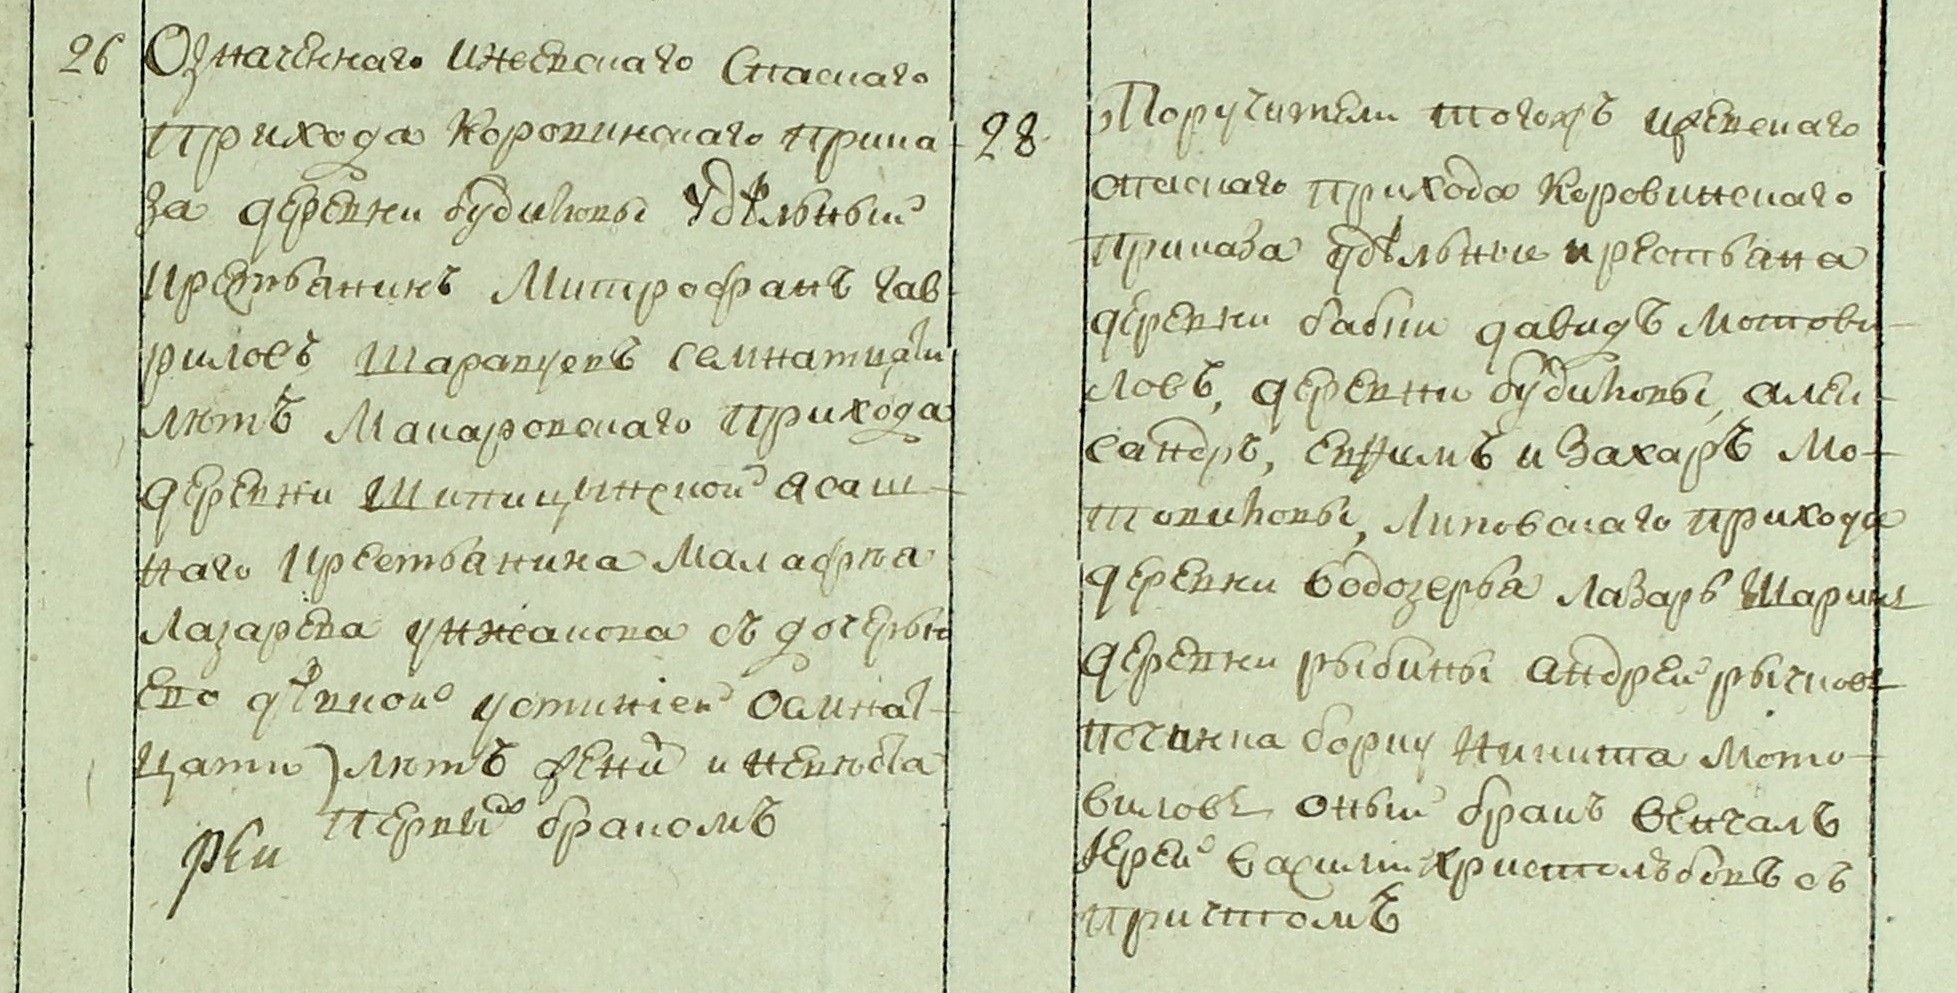 26 Означеннаго Ижевскаго Спаскаго
прихода Коровинскаго прика-
за деревни будиловы удѣльный
крестьянинъ Митрофанъ Гав-
риловъ Шаравуевъ семнатцати
лѣтъ Макаровскаго прихода
деревни Шипицынской ясаш-
наго крестьянина Малафѣа
Лазарева унжакова съ дочерью
ево дѣвкой устиніей осмнат-
цати лѣтъ жени и невѣста
первый бракомъ
28
Поручители тогожъ Ижевскаго
спаскаго прихода Коровинскаго
приказа удѣльные крестьяна
деревни бабни давидъ Мотови-
ловъ, деревни будиловы, алек-
сандръ, Евфимъ и Захаръ Мо-
товиловы, Липовскаго прихода
деревни Водозерья Лазарь
деревни рыбины Андрей рычковъ
починка борку Никита Мото-
виловъ оный бракъ Венчалъ
Іерей Василии Христолюбовъ съ
причтомъ